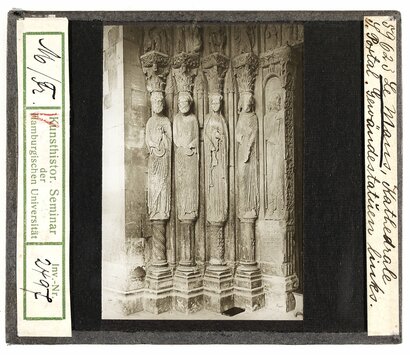 M/Fr.
Kunsthistor. Seminar
der
Hamburgischen Universität
Inv.-Nr.
2497
5962 Le Mans, Kathedrale
S. Portal. Gewändestatuen links.